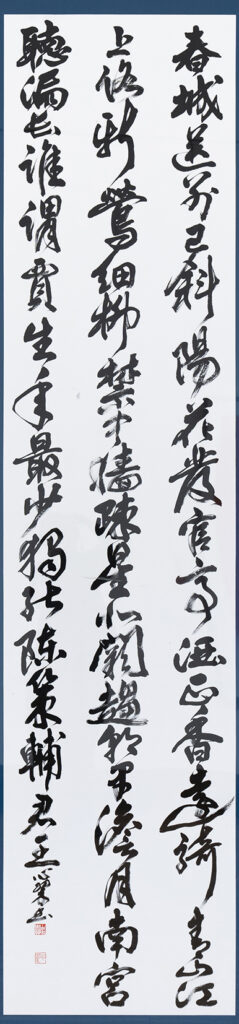 春城送別已斜陽花發官亭酒正香遠騎青山江
上路新鶯細柳禁中墻疎星北闕趨朝早澹月南宮
聽漏長誰謂賈生年最少獨能陳策輔君王